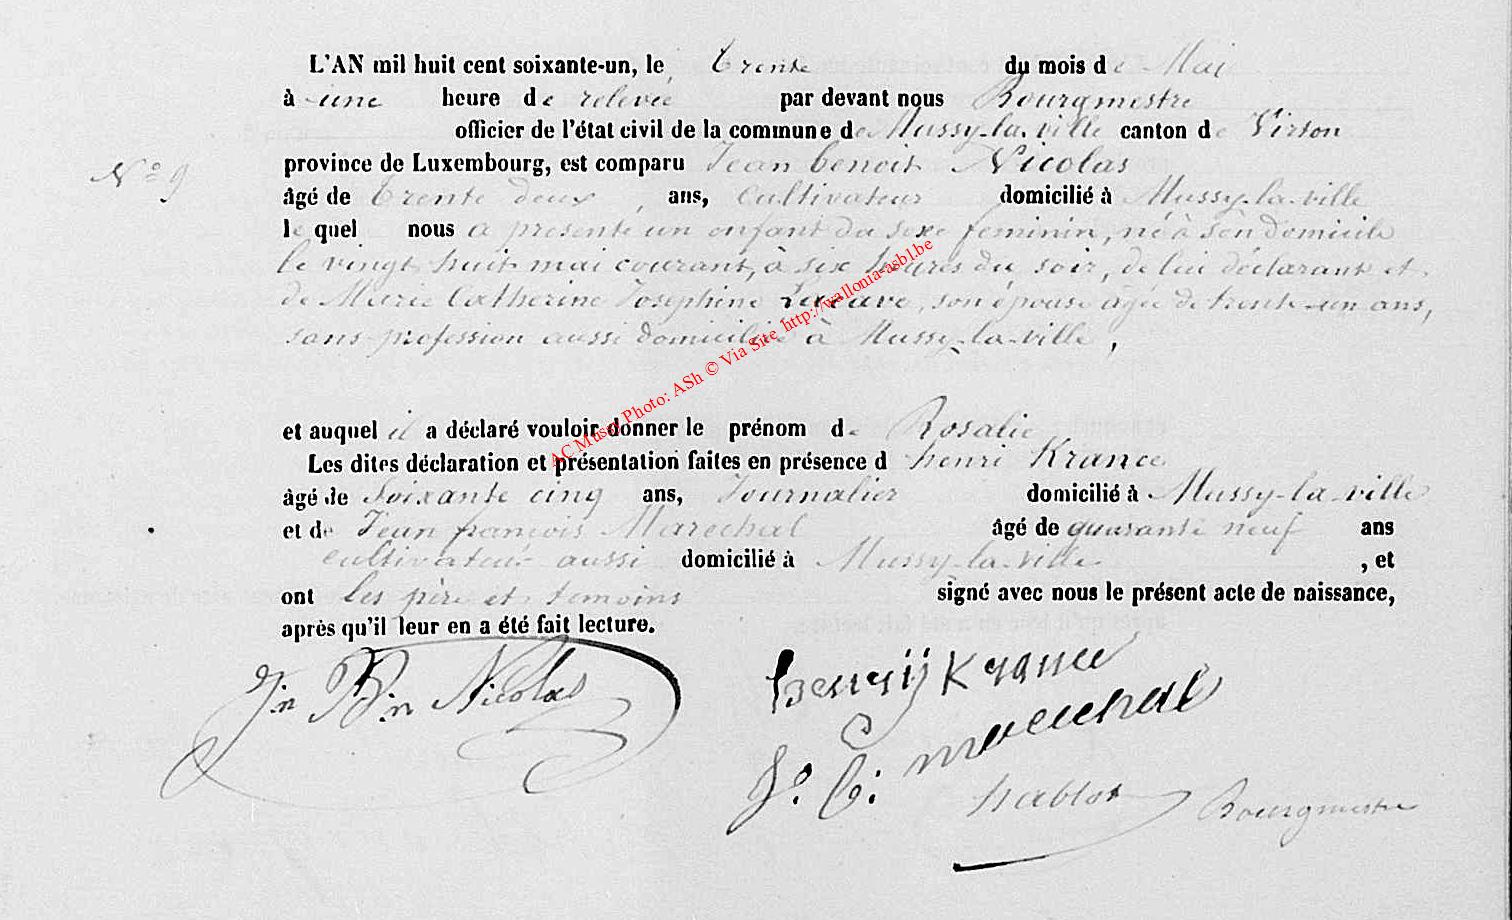 L'AN mil huit cent soixante-un, le trente du mois de Mai
à une heure de relevée par devant nous Bourgmestre
officier de l'état civil de la commune de Mussy-la-ville canton de Virton
N° 9
province de Luxembourg, est comparu Jean benoit Nicolas
âgé de trente deux, ans, cultivateur domicilié à Mussy-la-ville
le quel nous a présenté un enfant du sexe feminin, né à son domicile
le vingt huit mai courant, à six heures du soir, de lui déclarant et
de Marie Catherine Josephine Lavave, son épouse agée de trente-un ans,
sans profession aussi domiciliée à Mussy-la-ville,
et auquel il a déclaré vouloir donner le prénom de Rosalie
Les dites déclaration et présentation faites en présence d henri Krance
âgé de Soixante cinq ans, Journalier domicilié à Mussy-la-ville
et de Jean françois Marechal âgé de quarante neuf ans
cultivateur aussi domicilié à Mussy-la-ville , et
ont les père et temoins signé avec nous le présent acte de naissance,
après qu'il leur en a été fait lecture.
Jn Bn Nicolas
henrij Krance
J. f: marechal
hablot Bourgmestre
AC Mussy Photo: ASh © Via Site http://wallonia-asbl.be